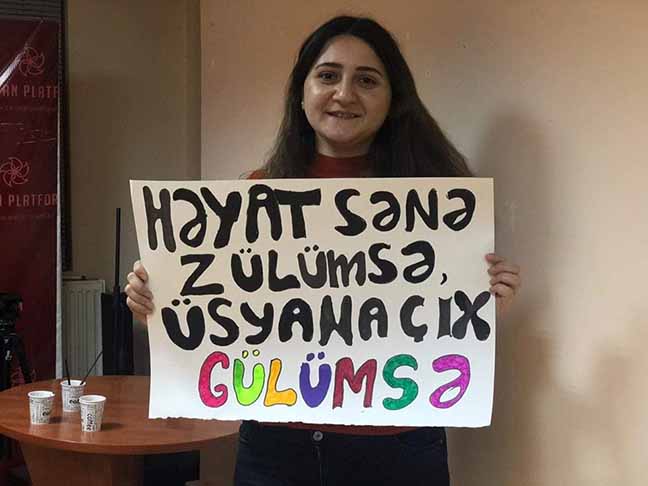 AN PLATF
N PLATFOR
HƏYAT SƏNƏ
ZÜLÜMSƏ,
ÜSYANA ÇIX
GÜLÜMSƏ